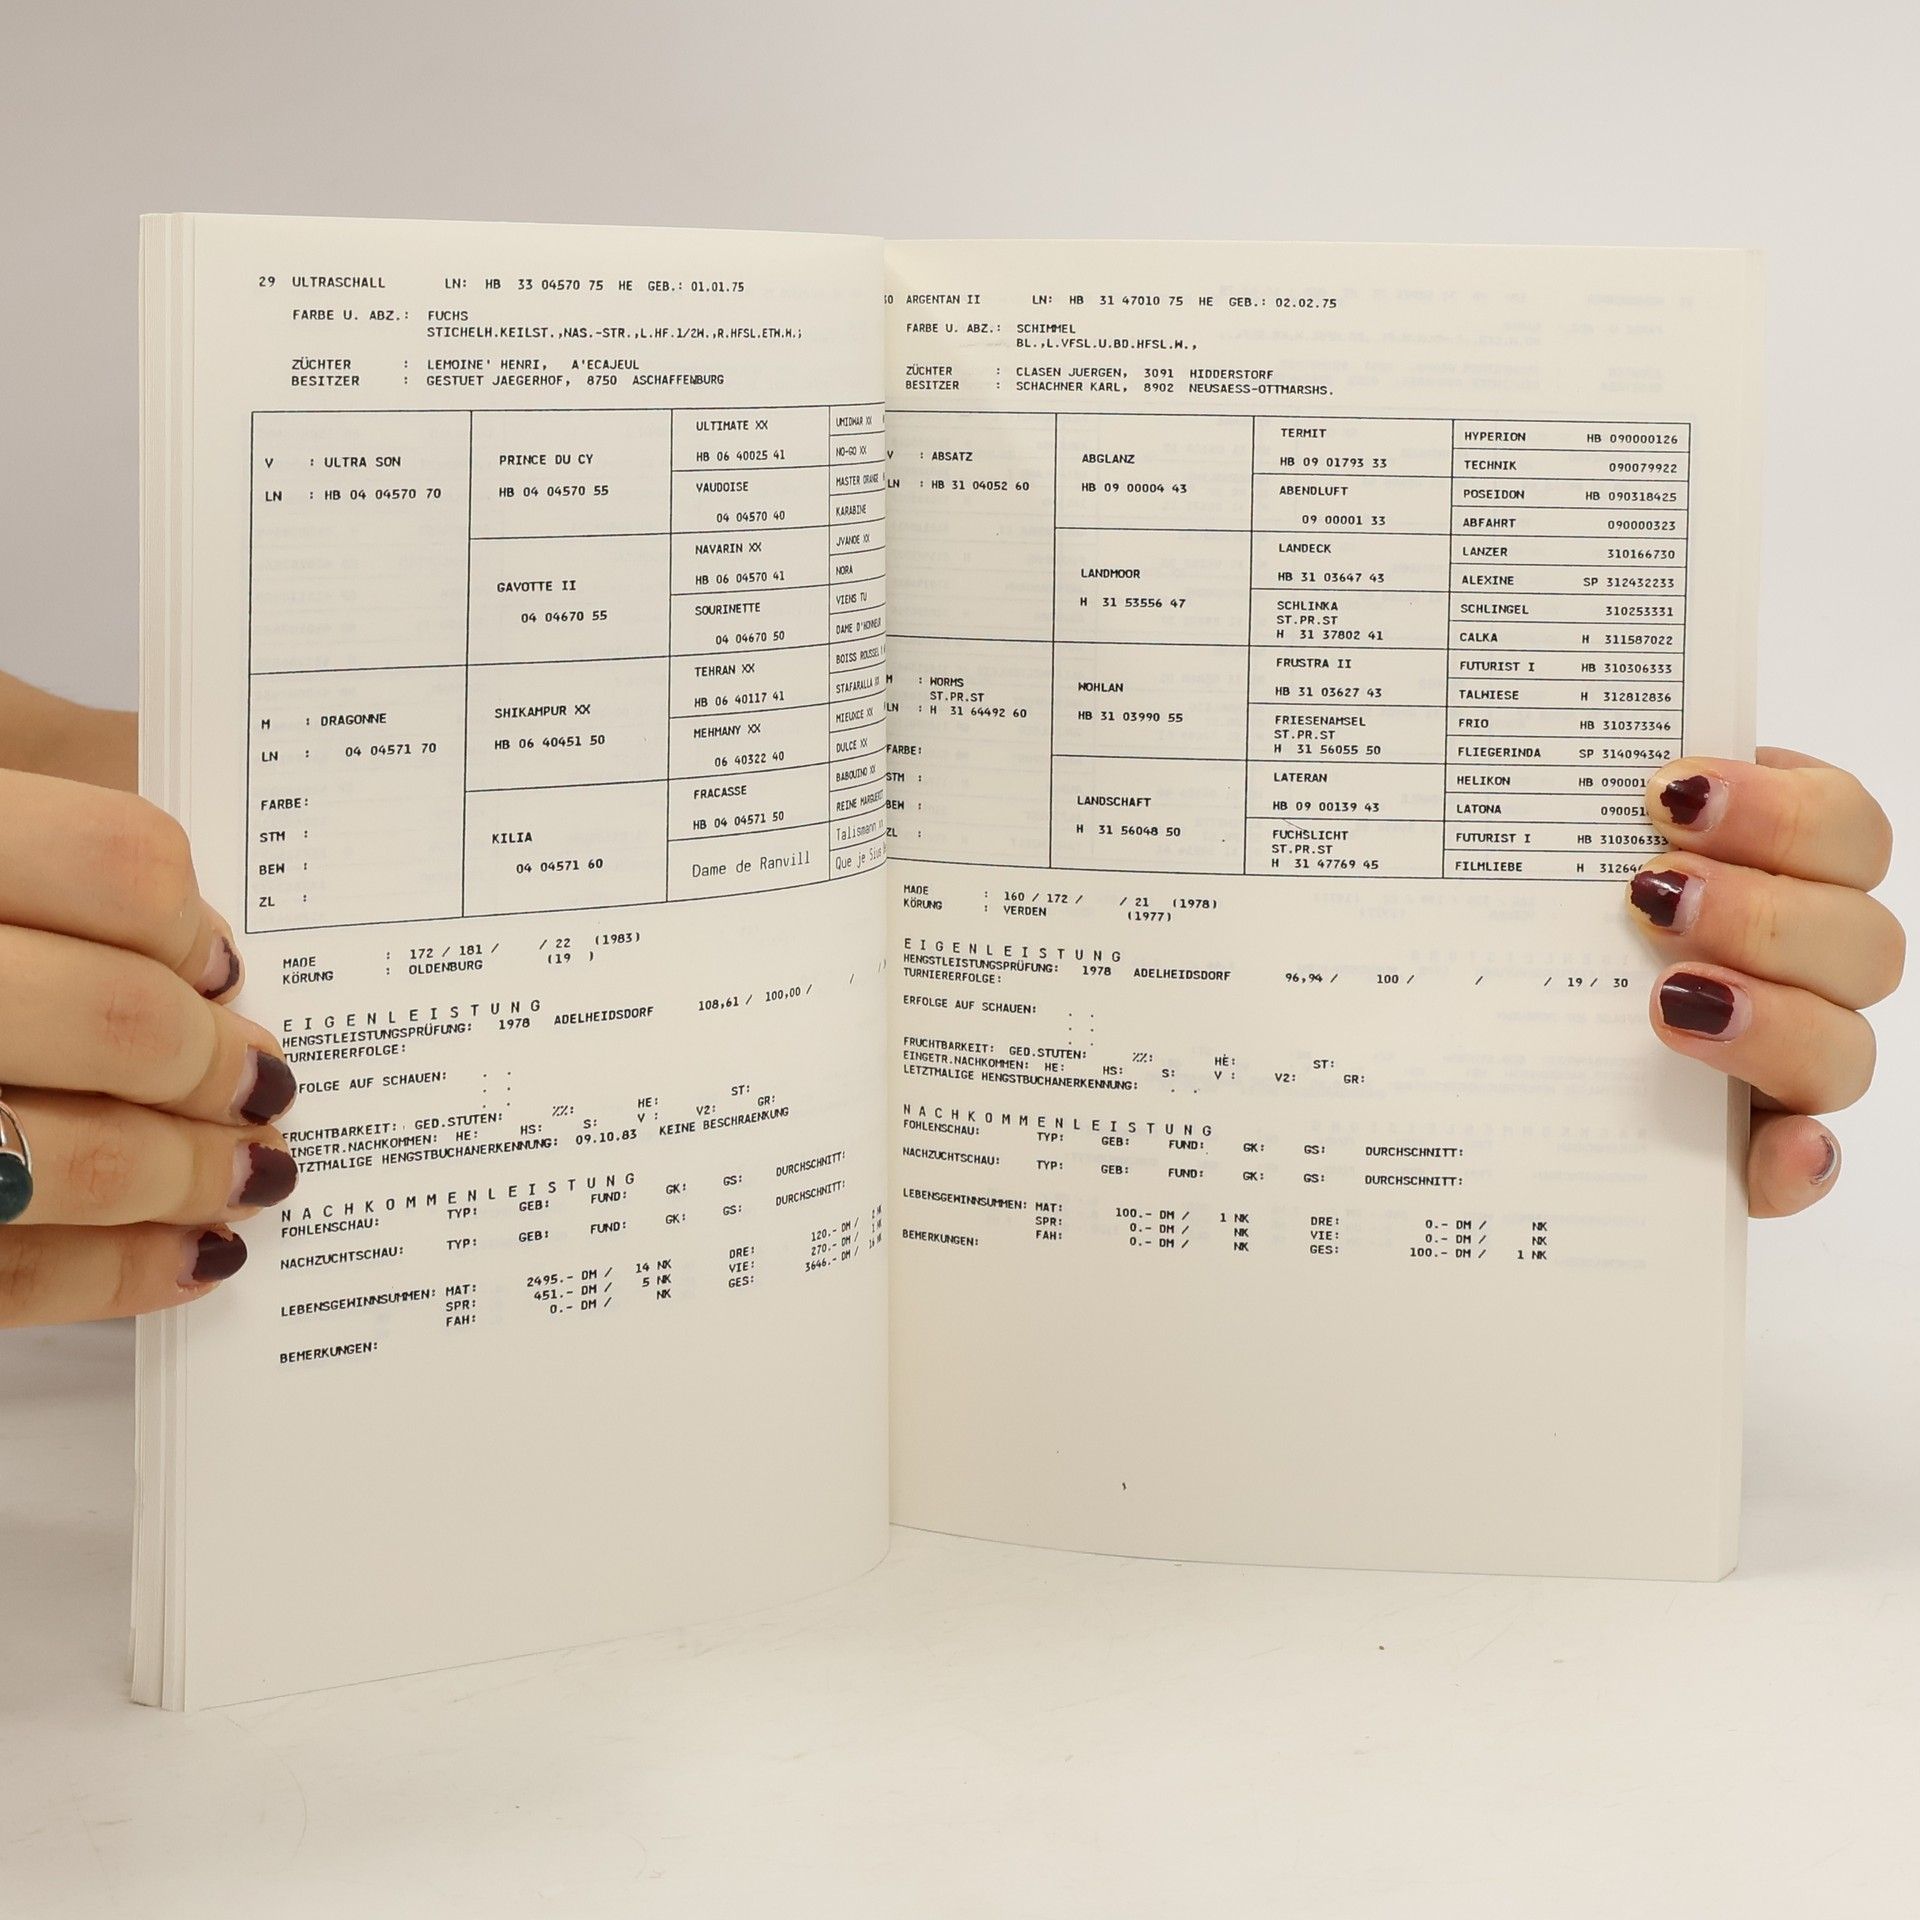 29 ULTRASCHALL LN: HB 33 04570 75 HE GEB.: 01.01.75
FARBE U. ABZ.: FUCHS
STICHELH.KEILST.,NAS.-STR.,L.HF.1/2W.,R.HFSL.ETW.W.;
ZÜCHTER : LEMOINE' HENRI, A'ECAJEUL
BESITZER : GESTUET JAEGERHOF, 8750 ASCHAFFENBURG
V : ULTRA SON
LN : HB 04 04570 70
M : DRAGONNE
LN : 04 04571 70
FARBE:
STM :
BEW :
ZL :
PRINCE DU CY
HB 04 04570 55
GAVOTTE II
04 04670 55
SHIKAMPUR XX
HB 06 40451 50
KILIA
04 04571 60
ULTIMATE XX
HB 06 40025 41
VAUDOISE
04 04570 40
NAVARIN XX
HB 06 04570 41
SOURINETTE
04 04670 50
TEHRAN XX
HB 06 40117 41
MEHMANY XX
06 40322 40
FRACASSE
HB 04 04571 50
Dame de Ranvill
UMIDWAR XX
NO-GO XX
MASTER ORANGE
KARABINE
JVANOE XX
NORA
VIENS TU
DAME D'HONNEUR
BOISS ROUSSEL
STAFARALLA XX
MIEUXCE XX
DULCE XX
BABOUINO XX
REINE MARGUERIT
Talismann
Que je
MAßE : 172 / 181 / / 22 (1983)
KÖRUNG : OLDENBURG (19 )
EIGENLEISTUNG
HENGSTLEISTUNGSPRÜFUNG: 1978 ADELHEIDSDORF 108,61 / 100,00 / /
TURNIERERFOLGE:
FOLGE AUF SCHAUEN: . .
. .
. .
FRUCHTBARKEIT: GED.STUTEN: %%: HE: ST:
INGETR.NACHKOMMEN: HE: HS: S: V : V2: GR:
TZTMALIGE HENGSTBUCHANERKENNUNG: 09.10.83 KEINE BESCHRAENKUNG
NACHKOMMENLEISTUNG
FOHLENSCHAU: TYP: GEB: FUND: GK: GS: DURCHSCHNITT:
NACHZUCHTSCHAU: TYP: GEB: FUND: GK: GS: DURCHSCHNITT:
LEBENSGEWINNSUMMEN: MAT: 2495.- DM / 14 NK DRE: 120.- DM /
SPR: 451.- DM / 5 NK VIE: 270.- DM /
FAH: 0.- DM / NK GES: 3646.- DM /
BEMERKUNGEN:
30 ARGENTAN II LN: HB 31 47010 75 HE GEB.: 02.02.75
FARBE U. ABZ.: SCHIMMEL
BL.,L.VFSL.U.BD.HFSL.W.,
ZÜCHTER : CLASEN JUERGEN, 3091 HIDDERSTORF
BESITZER : SCHACHNER KARL, 8902 NEUSAESS-OTTMARSHS.
V : ABSATZ
LN : HB 31 04052 60
M : WORMS
ST.PR.ST
LN : H 31 64492 60
FARBE:
STM :
BEW :
ZL :
ABGLANZ
HB 09 00004 43
LANDMOOR
H 31 53556 47
WOHLAN
HB 31 03990 55
LANDSCHAFT
H 31 56048 50
TERMIT
HB 09 01793 33
ABENDLUFT
09 00001 33
LANDECK
HB 31 03647 43
SCHLINKA
ST.PR.ST
H 31 37802 41
FRUSTRA II
HB 31 03627 43
FRIESENAMSEL
ST.PR.ST
H 31 56055 50
LATERAN
HB 09 00139 43
FUCHSLICHT
ST.PR.ST
H 31 47769 45
HYPERION HB 090000126
TECHNIK 090079922
POSEIDON HB 090318425
ABFAHRT 090000323
LANZER 310166730
ALEXINE SP 312432233
SCHLINGEL 310253331
CALKA H 311587022
FUTURIST I HB 310306333
TALWIESE H 312812836
FRIO HB 310373346
FLIEGERINDA SP 314094342
HELIKON HB 09000
LATONA 09005
FUTURIST I HB 310306333
FILMLIEBE H 3126
MAßE : 160 / 172 / / 21 (1978)
KÖRUNG : VERDEN (1977)
EIGENLEISTUNG
HENGSTLEISTUNGSPRÜFUNG: 1978 ADELHEIDSDORF 96,94 / 100 / / / 19 / 30
TURNIERERFOLGE:
ERFOLGE AUF SCHAUEN: . .
. .
. .
FRUCHTBARKEIT: GED.STUTEN: %%: HE: ST:
EINGETR.NACHKOMMEN: HE: HS: S: V : V2: GR:
LETZTMALIGE HENGSTBUCHANERKENNUNG: . .
NACHKOMMENLEISTUNG
FOHLENSCHAU: TYP: GEB: FUND: GK: GS: DURCHSCHNITT:
NACHZUCHTSCHAU: TYP: GEB: FUND: GK: GS: DURCHSCHNITT:
LEBENSGEWINNSUMMEN: MAT: 100.- DM / 1 NK DRE: 0.- DM / NK
SPR: 0.- DM / NK VIE: 0.- DM / NK
FAH: 0.- DM / NK GES: 100.- DM / 1 NK
BEMERKUNGEN: